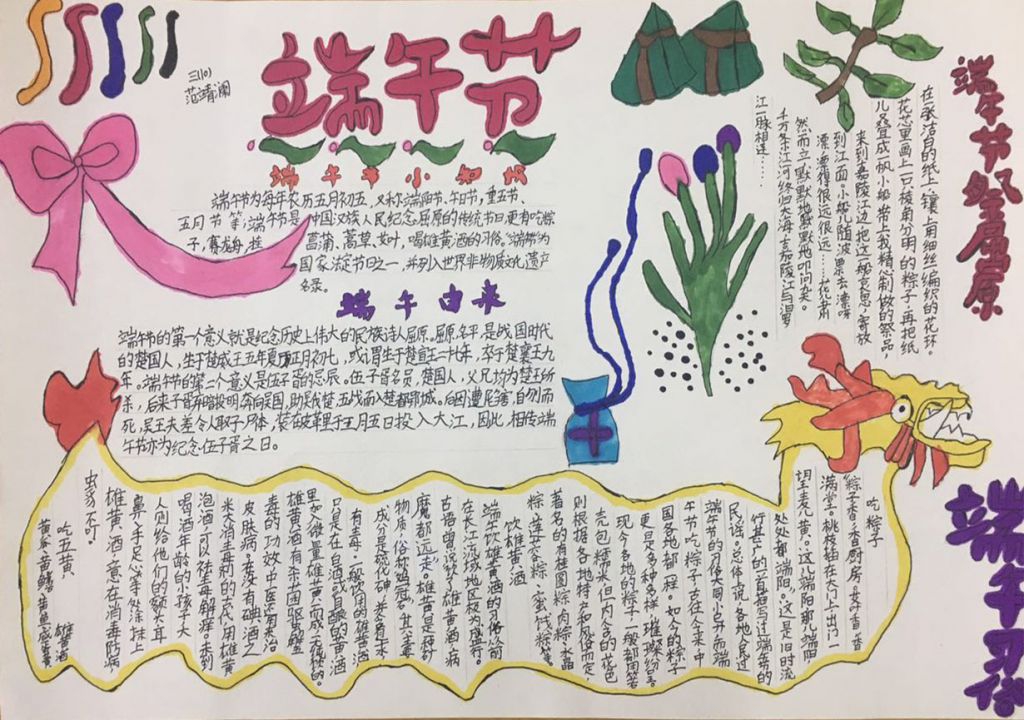 三(10)
范靖澜
端午节
端午节小知识
端午节为每年农历五月初五,又称端阳节、午日节、重五节、
五月节等,端午节是中国汉族人民纪念屈原的传统节日,更有吃粽
子,赛龙舟,挂菖蒲、蒿草、艾叶,喝雄黄酒的习俗。"端午节"为
国家法定节日之一,并列入世界非物质文化遗产
名录。
端午由来
端午节的第一个意义就是纪念历史上伟大的民族诗人屈原。屈原,名平,是战国时代
的楚国人,生于楚威王五年夏历正月初七,或谓生于楚宣王二十七年,卒于楚襄王九
年。端午节的第二个意义是伍子胥的忌辰。伍子胥名员,楚国人,父兄均为楚王所
杀,后来子胥奔向吴国,助吴伐楚,五战而入楚都郢城。
死,吴王夫差令人取子尸体,装在皮革里于五月五日投入大江,因此,相传端
午节亦为纪念伍子胥之日。
端午节祭屈原
在一张洁白的纸上,镶一角细丝编织的花环。
花芯里画上一只棱角分明的粽子,再把纸
儿叠成一帆小船,带上我精心制做的祭品,
来到嘉陵江边,把这一船哀思,寄放
到江面。小船儿随波漂去,漂呀
漂,漂得很远很远……花儿肃
然而立,默默地叩问:
千万条江河终归大海,嘉陵江与汨罗
江一脉相连……
端午习俗
吃粽子
粽子香,香厨房。艾叶香,香
满堂。桃枝插在大门上,出门一
望麦儿黄。这儿端阳,那儿端阳,
处处都端阳。这是旧时流
行甚广的一首描写过端午节的
民谣。总体上说,各地人民过
端午节的习俗大同小异,而端
午节吃粽子,古往今来,中
国各地都一样。如今的粽子
更是多种多样,璀璨纷呈。
现今各地的粽子,一般都用箬
壳包糯米,但内含的花色
则根据各地特产和风俗而定,
著名的有桂圆粽、肉粽、水晶
粽、莲蓉粽、蜜饯粽等
饮雄黄酒
端午饮雄黄酒的习俗,从前
在长江流域地区极为盛行。
古语曾说"饮了雄黄酒,病
魔都远走"。雄黄是一种矿
物质,俗称"鸡冠石",其主要
成分是硫化砷,并含有汞,
有毒。一般饮用的雄黄酒,
只是在白酒或自酿的黄酒
里加入微量雄黄而成,
雄黄酒有杀菌驱虫解
毒的功效,中医还用来治
皮肤病。在没有碘酒之
类消毒剂的古代,用雄黄
泡酒,可以祛毒解痒。未到
喝酒年龄的小孩子,大
人则给他们的额头、耳
鼻、手足心等处涂抹上
雄黄酒,意在消毒防病,
虫豸不叮。
吃五黄
雄黄酒